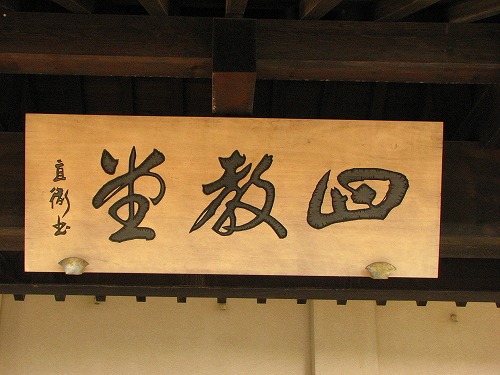 四教堂
直衛書